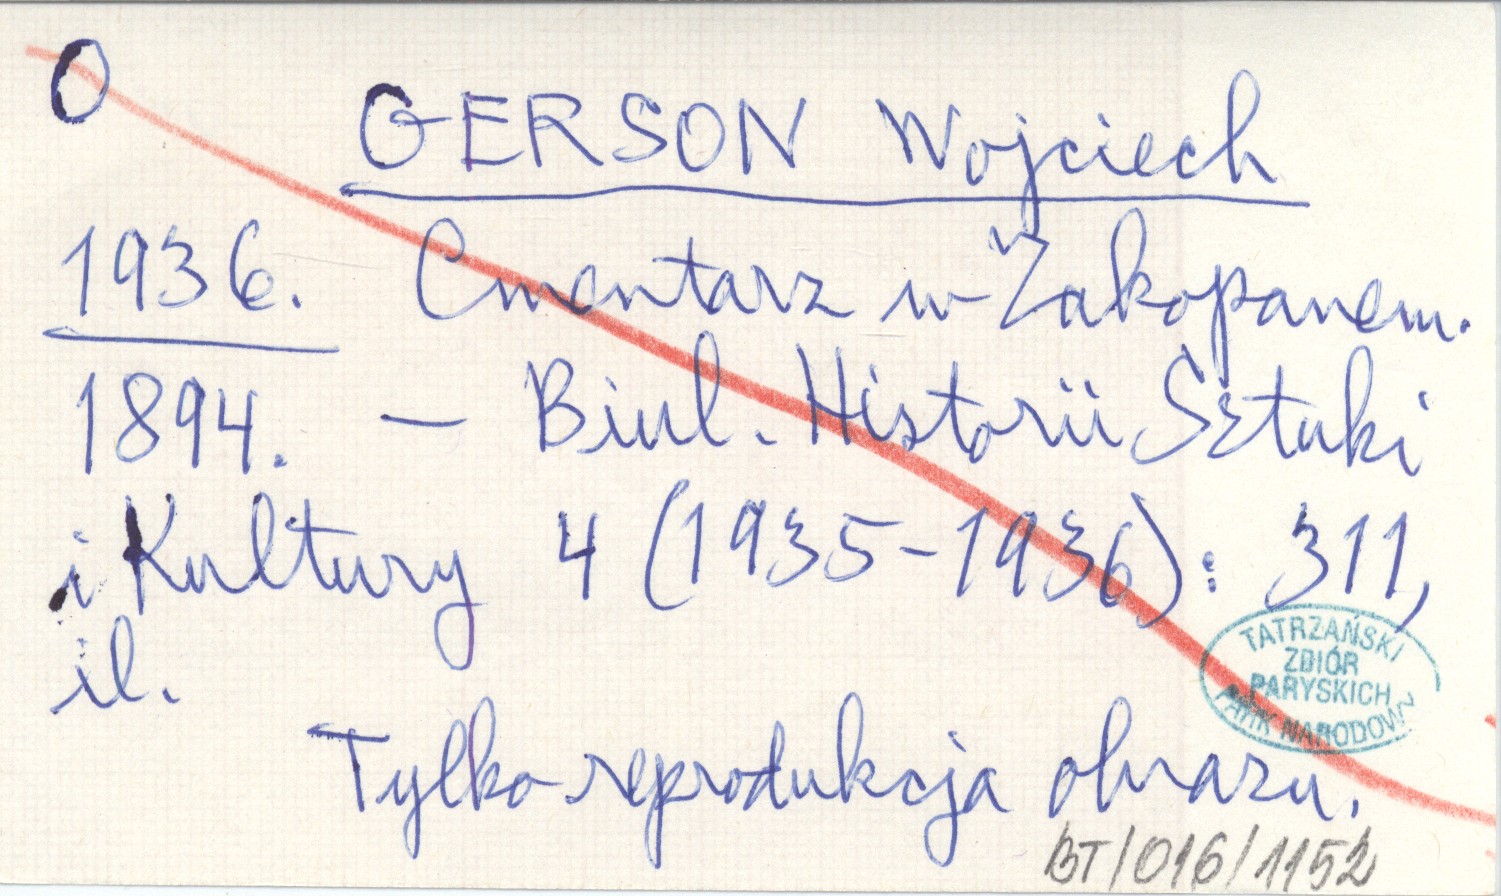 O
GERSON Wojciech
1936. Cmentarz w Zakopanem.
1894. — Biul. Historii Sztuki
i Kultury 4 (1935-1936): 311,
il.
TATRZAŃSKI
ZBIÓR
PARYSKICH
PARK NARODOWY
Tylko reprodukcja obrazu.
BT/016/1152